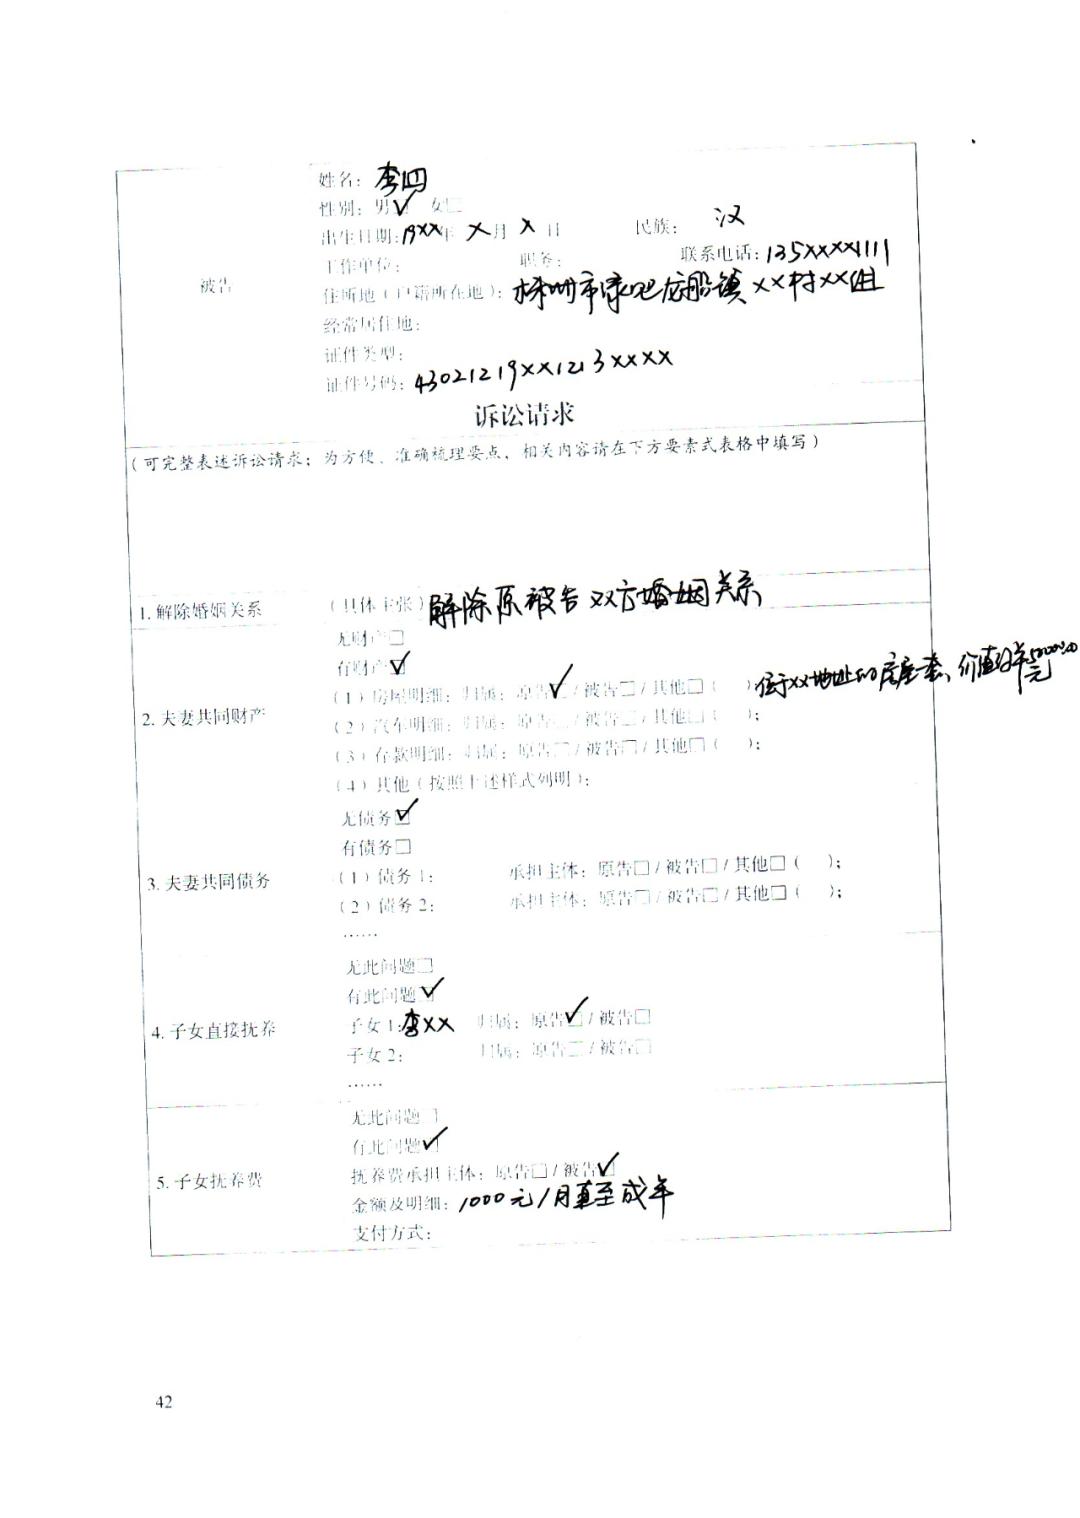 姓名：李四
性别：男☑ 女□
出生日期：19XX年 X月 X日 民族： 汉
工作单位： 职务： 联系电话：135XXXX1111
被告
住所地（户籍所在地）：株洲市渌口区 船镇XX村XX组
经常居住地：
证件类型：
证件号码：43021219XX1213XXXX
诉讼请求
（可完整表述诉讼请求；为方便、准确梳理要点，相关内容请在下方要素式表格中填写）
1. 解除婚姻关系 （具体主张）解除原被告双方婚姻关系
无财产□
有财产☑
（1）房屋明细：归属：原告☑/被告□/其他□（ ） 位于XX地址的房屋一套、价值约 元
2. 夫妻共同财产
（2）汽车明细：归属：原告□/被告□/其他□（ ）；
（3）存款明细：归属：原告□/被告□/其他□（ ）；
（4）其他（按照上述样式列明）：
无债务☑
有债务□
3. 夫妻共同债务 （1）债务1： 承担主体：原告□/被告□/其他□（ ）；
（2）债务2： 承担主体：原告□/被告□/其他□（ ）；
……
无此问题□
有此问题☑
4. 子女直接抚养 子女1：李XX 归属：原告☑/被告□
子女2： 归属：原告□/被告□
……
无此问题□
有此问题☑
5. 子女抚养费 抚养费承担主体：原告□/被告☑
金额及明细：1000元/月直至成年
支付方式：
42